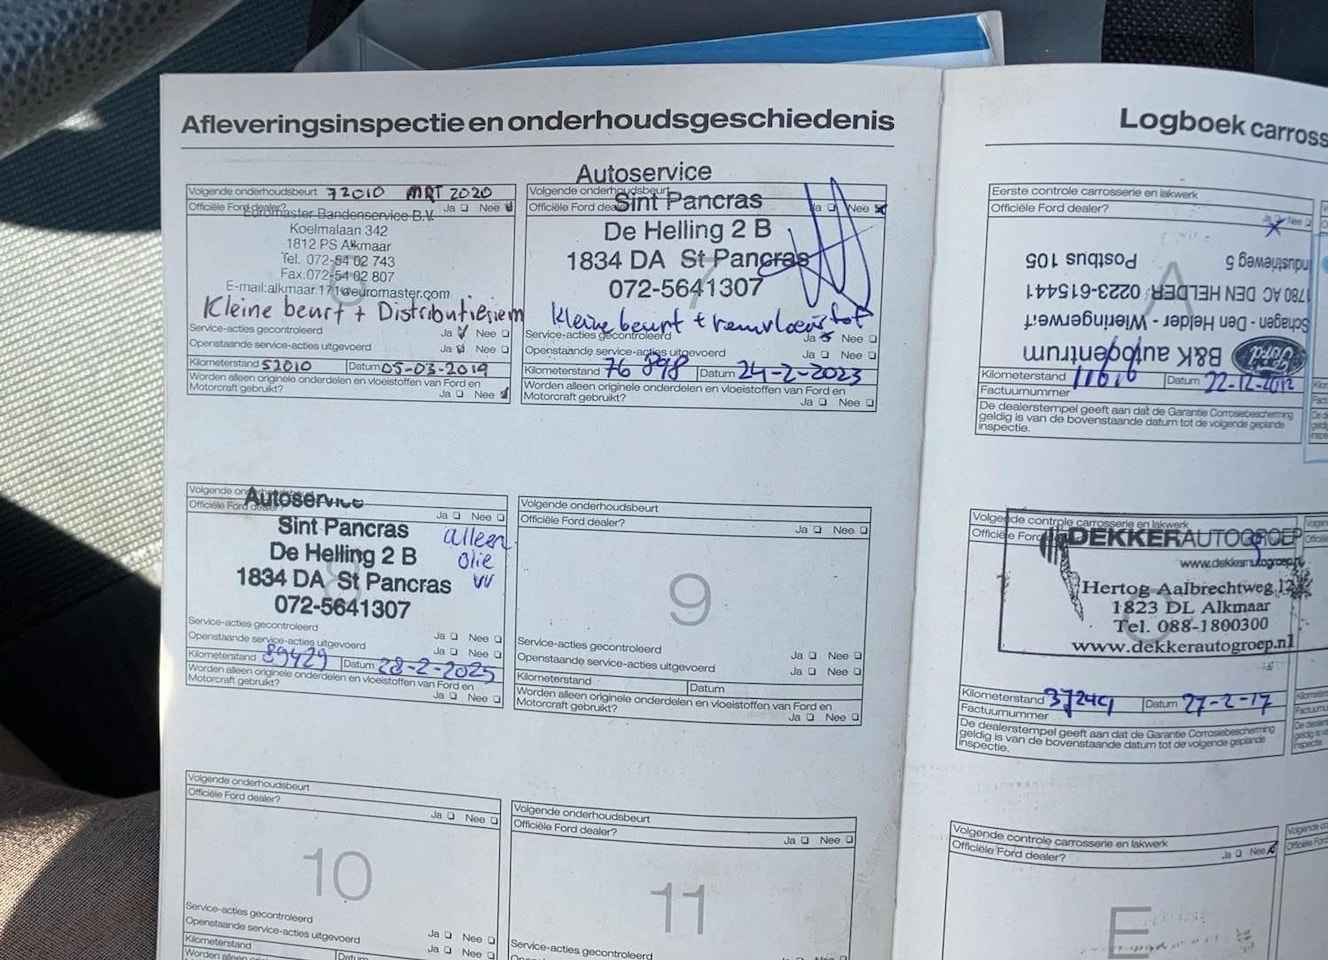 Afleveringsinspectie en onderhoudsgeschiedenis
Volgende onderhoudsbeurt 72010 MRT 2020
Officiële Ford dealer? Ja Nee
Euromaster Bandenservice B.V.
Koelmalaan 342
1812 PS Alkmaar
Tel. 072-54 02 743
Fax.072-54 02 807
E-mail:alkmaar.171@euromaster.com
Kleine beurt + Distributieriem
Service-acties gecontroleerd Ja Nee
Openstaande service-acties uitgevoerd Ja Nee
Kilometerstand 52010 Datum 05-03-2019
Worden alleen originele onderdelen en vloeistoffen van Ford en
Motorcraft gebruikt? Ja Nee
Autoservice
Volgende onderhoudsbeurt
Sint Pancras
Officiële Ford dealer? Ja Nee
De Helling 2 B
1834 DA St Pancras
7
072-5641307
Kleine beurt + remvloeistof
Service-acties gecontroleerd Ja Nee
Openstaande service-acties uitgevoerd Ja Nee
Kilometerstand 76 898 Datum 24-2-2023
Worden alleen originele onderdelen en vloeistoffen van Ford en
Motorcraft gebruikt? Ja Nee
Autoservice
Officiële Ford dealer? Ja Nee
Sint Pancras
De Helling 2 B
1834 DA St Pancras
8
072-5641307
alleen
olie
vv
Service-acties gecontroleerd
Openstaande service-acties uitgevoerd Ja Nee
Ja Nee
Kilometerstand 89429 Datum 28-2-2025
Worden alleen originele onderdelen en vloeistoffen van Ford en
Motorcraft gebruikt? Ja Nee
Volgende onderhoudsbeurt
Officiële Ford dealer? Ja Nee
9
Service-acties gecontroleerd Ja Nee
Openstaande service-acties uitgevoerd Ja Nee
Kilometerstand Datum
Worden alleen originele onderdelen en vloeistoffen van Ford en
Motorcraft gebruikt? Ja Nee
Volgende onderhoudsbeurt
Officiële Ford dealer? Ja Nee
10
Service-acties gecontroleerd
Openstaande service-acties uitgevoerd Ja Nee
Kilometerstand Ja Nee
Worden alleen Datum
Volgende onderhoudsbeurt
Officiële Ford dealer? Ja Nee
11
Service-acties gecontroleerd
Openstaande service-acties uitgevoerd Ja Nee
Logboek carross
Eerste controle carrosserie en lakwerk
Officiële Ford dealer? Ja Nee
A
Ford B&K autocentrum
Schagen - Den Helder - Wieringerwerf
1780 AC DEN HELDER 0223-615441
Industrieweg 5 Postbus 105
Kilometerstand 11616 Datum 22-12-2012
Factuurnummer
De dealerstempel geeft aan dat de Garantie Corrosiebescherming
geldig is van de bovenstaande datum tot de volgende geplande
inspectie.
Volgende controle carrosserie en lakwerk
Officiële Ford
DEKKERAUTOGROEP
www.dekkerautogroep.nl
Hertog Aalbrechtweg
1823 DL Alkmaar
Tel. 088-1800300
www.dekkerautogroep.nl
Kilometerstand Datum 27-2-17
Factuurnummer
De dealerstempel geeft aan dat de Garantie Corrosiebescherming
geldig is van de bovenstaande datum tot de volgende geplande
inspectie.
Volgende controle carrosserie en lakwerk
Officiële Ford dealer? Ja Nee
E